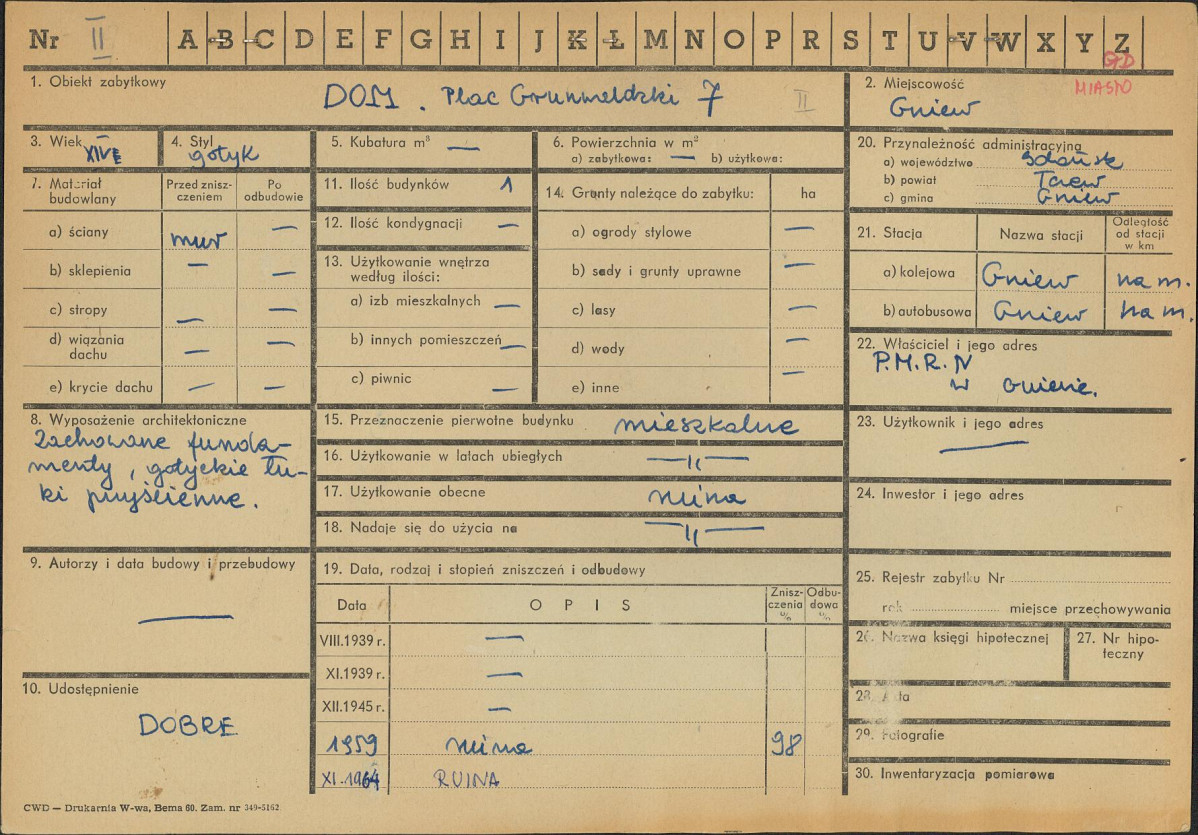 Nr II A B C D E F G H I J K Ł M N O P R S T U V W X Y Z
GD
MIASTO
1. Obiekt zabytkowy
DOM. Plac Grunwaldzki 7 II
2. Miejscowość
Gniew
3. Wiek XIV
4. Styl
gotyk
5. Kubatura m³ —
6. Powierzchnia w m²
a) zabytkowa: — b) użytkowa:
20. Przynależność administracyjna
a) województwo Gdańsk
b) powiat Tczew
c) gmina Gniew
7. Materiał budowlany
Przed zniszczeniem
Po odbudowie
a) ściany mur —
b) sklepienia — —
c) stropy — —
d) wiązania dachu — —
e) krycie dachu — —
11. Ilość budynków 1
12. Ilość kondygnacji —
13. Użytkowanie wnętrza
według ilości:
a) izb mieszkalnych —
b) innych pomieszczeń —
c) piwnic —
14. Grunty należące do zabytku: ha
a) ogrody stylowe —
b) sady i grunty uprawne —
c) lasy —
d) wody —
e) inne —
21. Stacja
Nazwa stacji
Odległość
od stacji
w km
a) kolejowa Gniew na m.
b) autobusowa Gniew na m.
22. Właściciel i jego adres
P.M.R.N
w Gniewie.
8. Wyposażenie architektoniczne
Zachowane funda-
menty, gotyckie łu-
ki przyścienne.
15. Przeznaczenie pierwotne budynku mieszkalne
16. Użytkowanie w latach ubiegłych —〃—
17. Użytkowanie obecne ruina
18. Nadaje się do użycia na —〃—
23. Użytkownik i jego adres
—
24. Inwestor i jego adres
9. Autorzy i data budowy i przebudowy
—
19. Data, rodzaj i stopień zniszczeń i odbudowy
Data OPIS
Znisz-
czenia
%
Odbu-
dowa
%
VIII.1939 r. —
XI.1939 r. —
XII.1945 r. —
1959 ruina 98
XI.1964 RUINA
25. Rejestr zabytku Nr
rok miejsce przechowywania
26. Nazwa księgi hipotecznej
27. Nr hipo-
teczny
10. Udostępnienie
DOBRE
28. Akta
29. Fotografie
30. Inwentaryzacja pomiarowa
CWD — Drukarnia W-wa, Bema 60. Zam. nr 349-5162